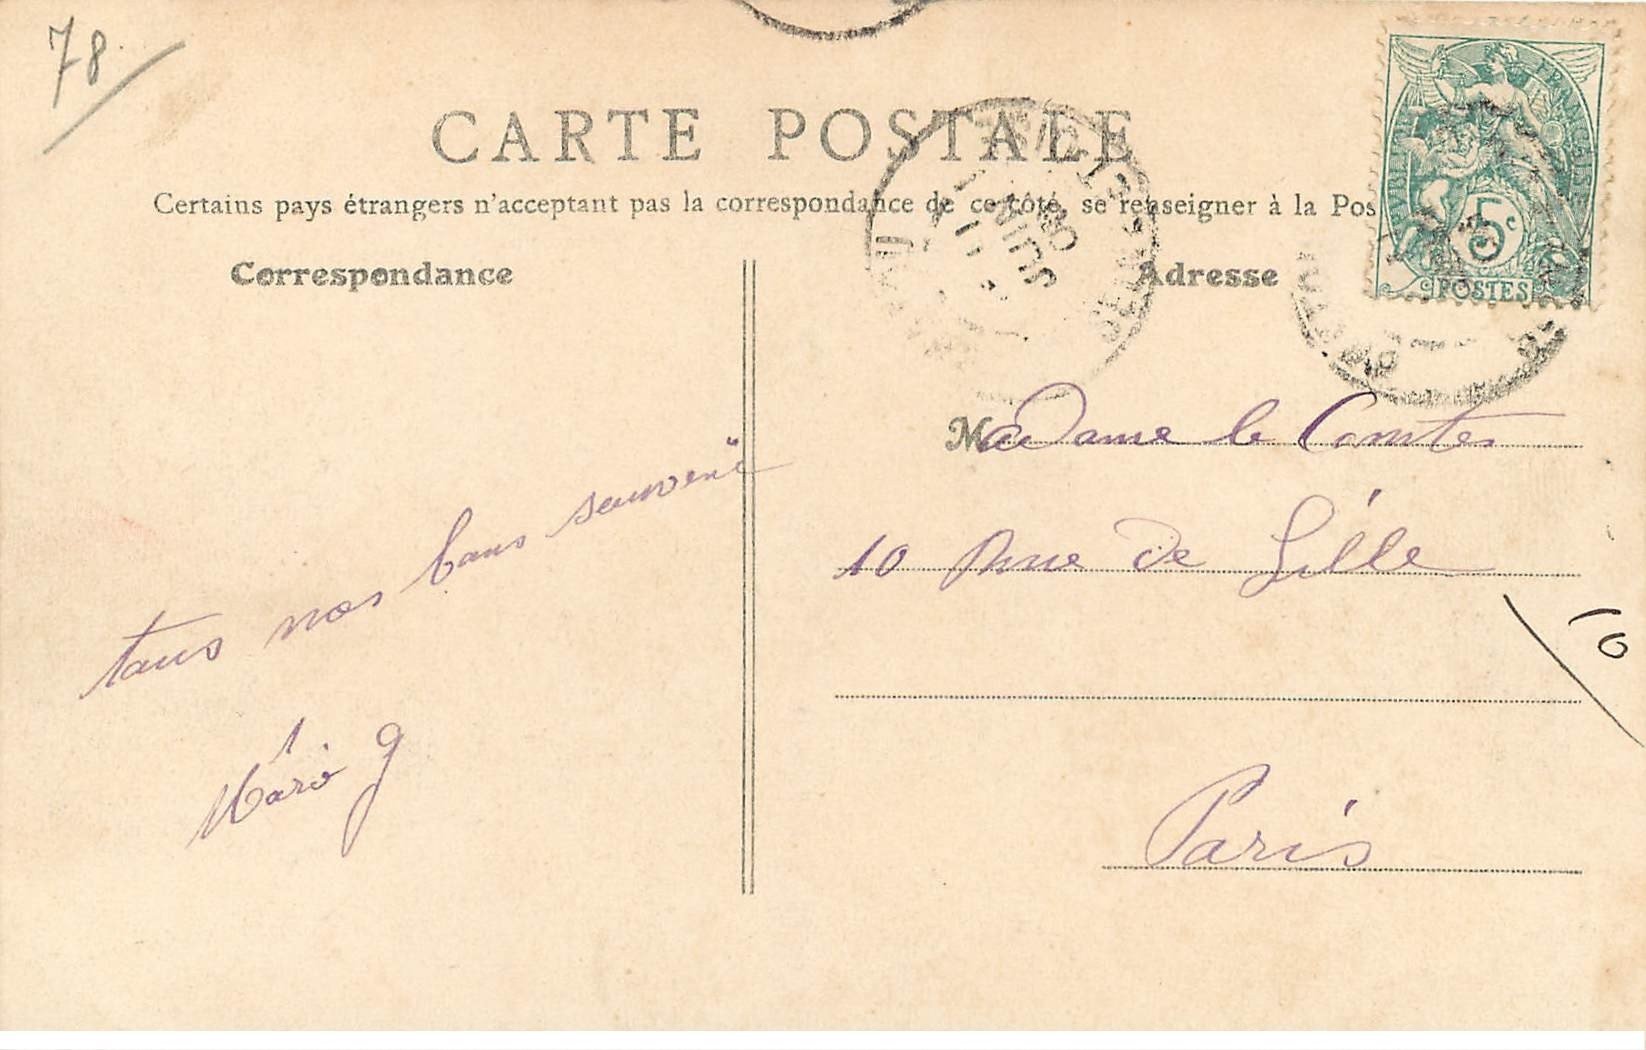 78
CARTE POSTALE
Certains pays étrangers n'acceptant pas la correspondance de ce côté, se renseigner à la Pos
Correspondance
Adresse
FRANÇAISE
5c
POSTES
JUIN
08
Madame le Comte
10 Rue de Lille
10
Paris
tous nos bons souvenir
G